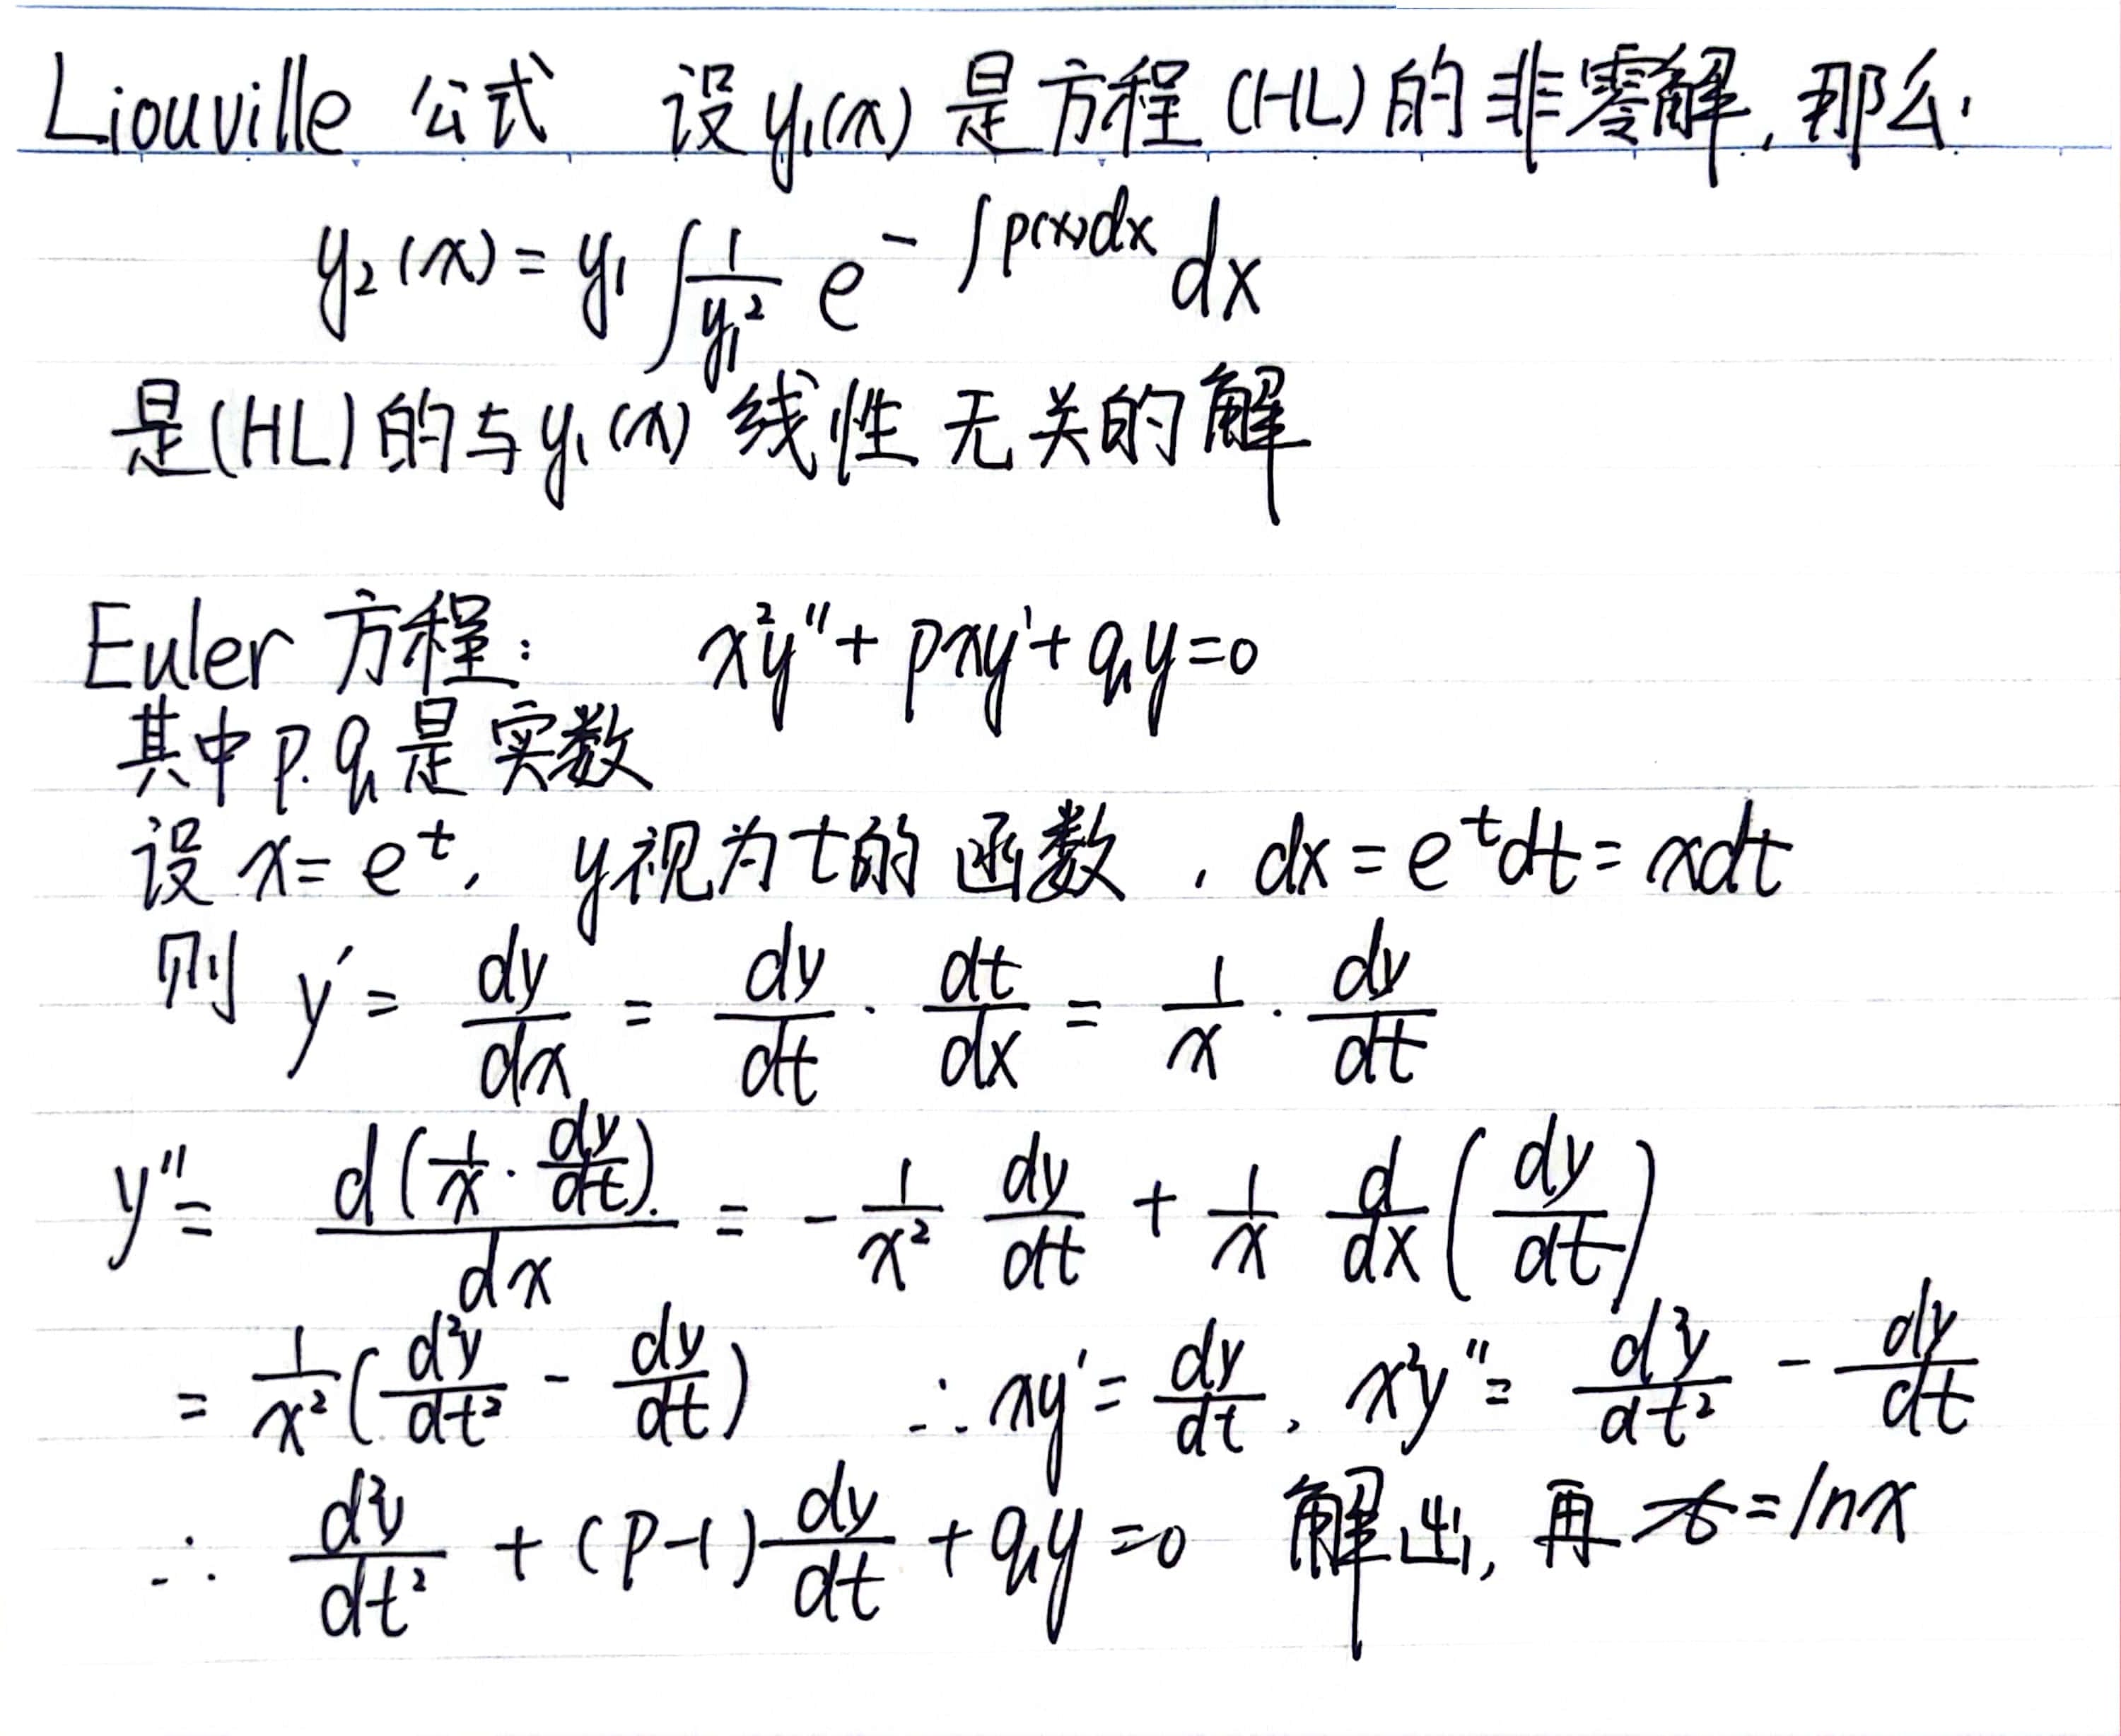 Liouville 公式 设 y₁(x) 是方程 (HL) 的非零解, 那么.
y₂(x) = y₁ ∫ \frac{1}{y₁²} e^{-∫p(x)dx} dx
是(HL)的与y₁(x)线性无关的解
Euler 方程: x²y'' + pxy' + qy = 0
其中 p. q 是实数
设 x = e^t, y视为t的函数, dx = e^t dt = xdt
则 y' = \frac{dy}{dx} = \frac{dy}{dt} · \frac{dt}{dx} = \frac{1}{x} · \frac{dy}{dt}
y'' = \frac{d(\frac{1}{x} · \frac{dy}{dt}).}{dx} = -\frac{1}{x²} \frac{dy}{dt} + \frac{1}{x} \frac{d}{dx}(\frac{dy}{dt})
= \frac{1}{x²}(\frac{d²y}{dt²} - \frac{dy}{dt}) ∴ xy' = \frac{dy}{dt}, x²y'' = \frac{d²y}{dt²} - \frac{dy}{dt}
∴ \frac{d²y}{dt²} + (p-1)\frac{dy}{dt} + qy = 0 解出, 再 t = lnx